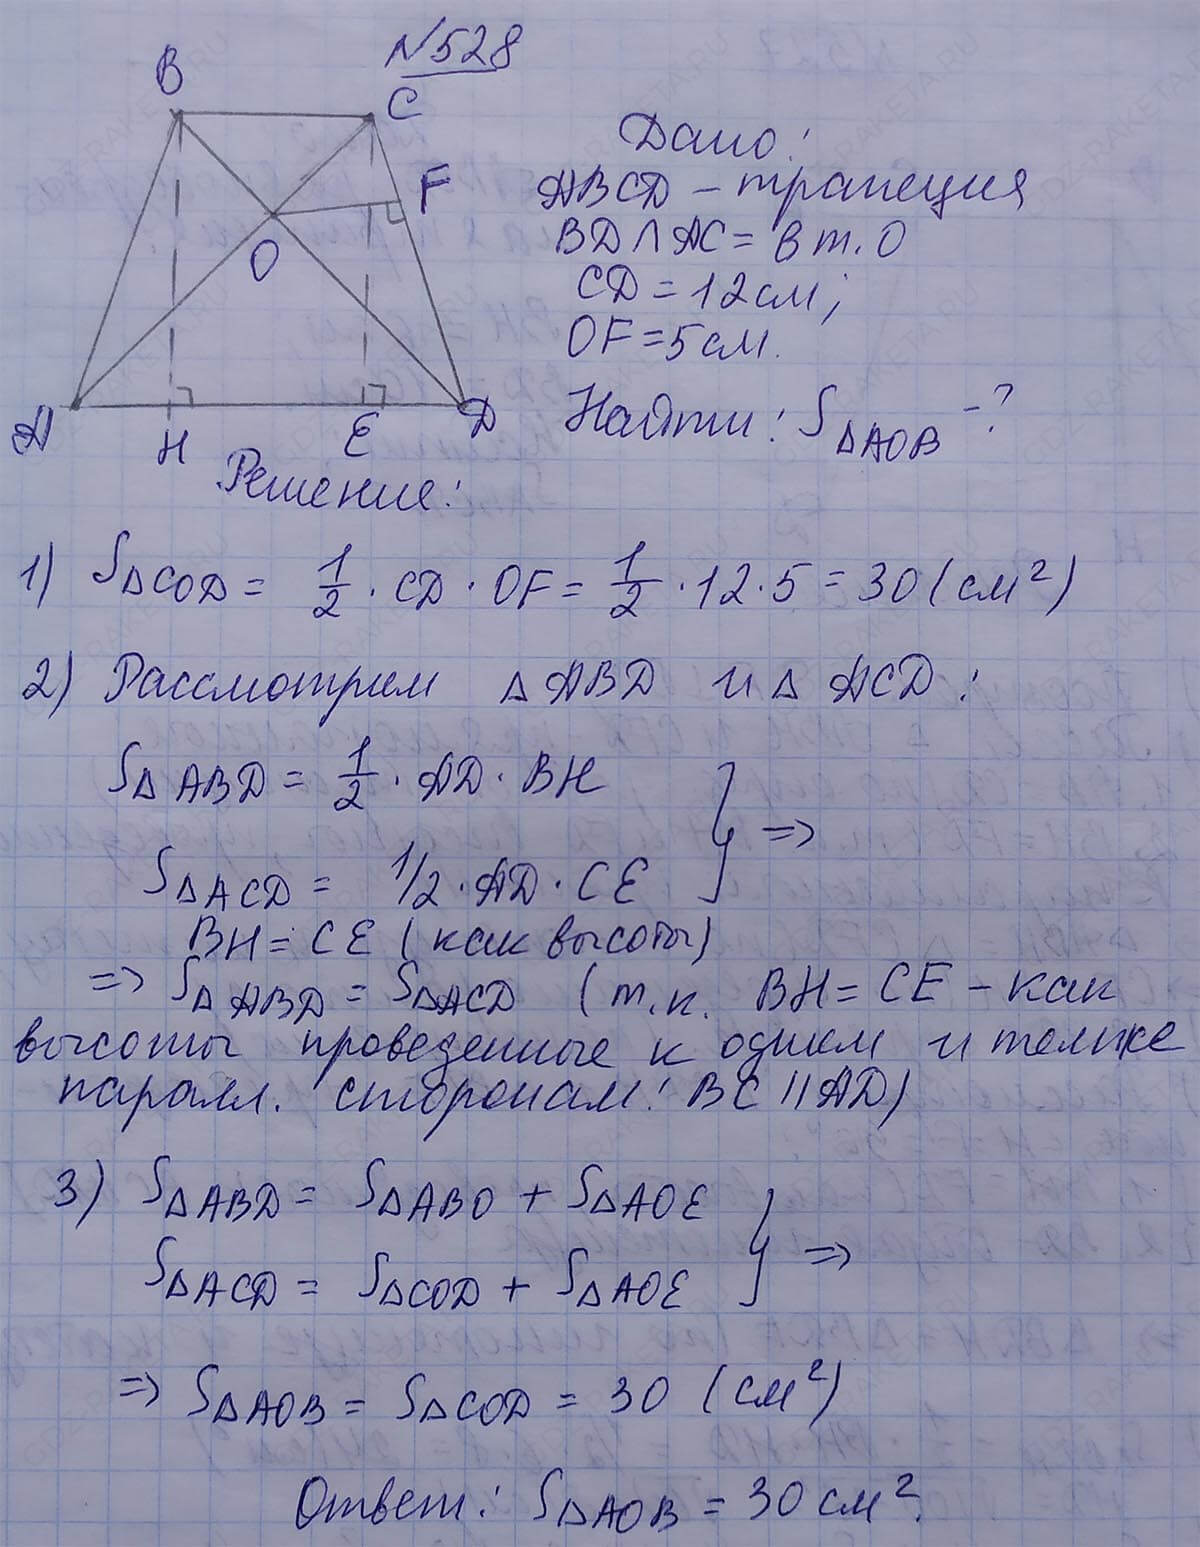 N528
B
C
F
O
A
H
E
D
Дано:
ABCD – трапеция
BD ∩ AC = в т. O
CD = 12 см;
OF = 5 см.
Найти: S△AOB – ?
Решение:
1) S△COD = 1/2 · CD · OF = 1/2 · 12 · 5 = 30 (см²)
2) Рассмотрим △ ABD и △ ACD:
S△ABD = 1/2 · AD · BH
S△ACD = 1/2 · AD · CE } =>
BH = CE (как высоты)
=> S△ABD = S△ACD (т.к. BH = CE – как
высоты проведенные к одним и тем же
паралл. сторонам: BC || AD)
3) S△ABD = S△ABO + S△AOE
S△ACD = S△COD + S△AOE } =>
=> S△AOB = S△COD = 30 (см²)
Ответ: S△AOB = 30 см².